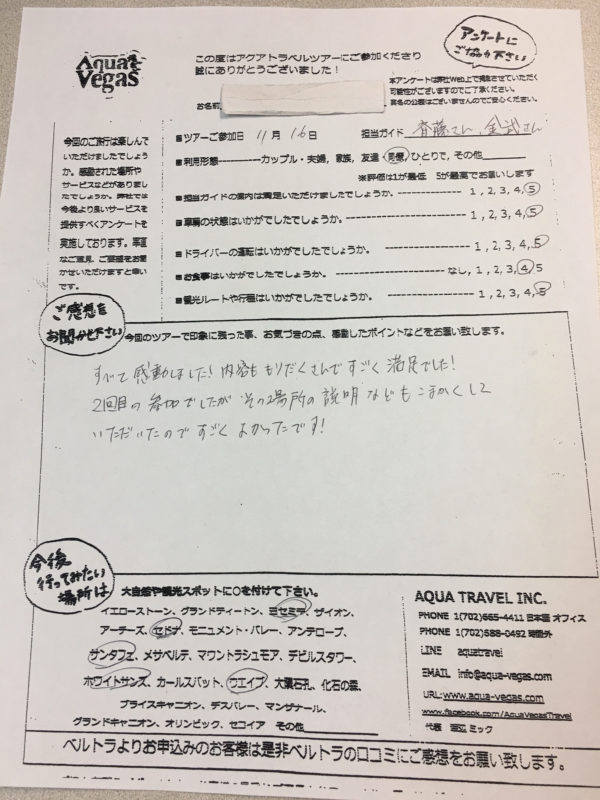 Aqua Vegas
この度はアクアトラベルツアーにご参加くださり
誠にありがとうございました！
アンケートに
ご協力下さい
本アンケートは弊社Web上で掲載させていただく
可能性がございますのでご了承ください。
実名の公表はございませんのでご安心ください。
お名前
■ツアーご参加日 11月 16日 担当ガイド 斉藤さん、金武さん
■利用形態-----------カップル・夫婦, 家族, 友達, 同僚, ひとりで, その他
※評価は1が最低 5が最高でお願いします
■担当ガイドの案内は満足いただけましたでしょうか。 1, 2, 3, 4, 5
■車輌の状態はいかがでしたでしょうか。 1, 2, 3, 4, 5
■ドライバーの運転はいかがでしたでしょうか。 1, 2, 3, 4, 5
■お食事はいかがでしたでしょうか。 なし, 1, 2, 3, 4, 5
■観光ルートや行程はいかがでしたでしょうか。 1, 2, 3, 4, 5
今回のご旅行は楽しんで
いただけましたでしょう
か。感動された場所や
サービスなどがありまし
たでしょうか。弊社では
今後より良いサービスを
提供すべくアンケートを
実施しております。率直
なご意見、ご感想をお聞
かせいただけますと幸い
です。
ご感想を
お聞かせ下さい
今回のツアーで印象に残った事、お気づきの点、感動したポイントなどをお願い致します。
すべて感動しました！内容ももりだくさんですごく満足でした！
2回目の参加でしたが その場所の説明などもこまかくして
いただいたのですごくよかったです！
今後
行ってみたい
場所は
大自然や観光スポットに○を付けて下さい。
イエローストーン、グランドティートン、ヨセミテ、ザイオン、
アーチーズ、セドナ、モニュメント・バレー、アンテロープ、
サンタフェ、メサベルデ、マウントラシュモア、デビルスタワー、
ホワイトサンズ、カールスバット、ウエイブ、大隕石孔、化石の森、
ブライスキャニオン、デスバレー、マンザナール、
グランドキャニオン、オリンピック、セコイア その他
AQUA TRAVEL INC.
PHONE 1(702)665-4411 日本語 オフィス
PHONE 1(702)688-0492 時間外
LINE aquatravel
EMAIL info@aqua-vegas.com
URL:www.aqua-vegas.com
www.facebook.com/AquaVegasTravel
代表 ミック
ベルトラよりお申込みのお客様は是非ベルトラの口コミにご感想をお願い致します。